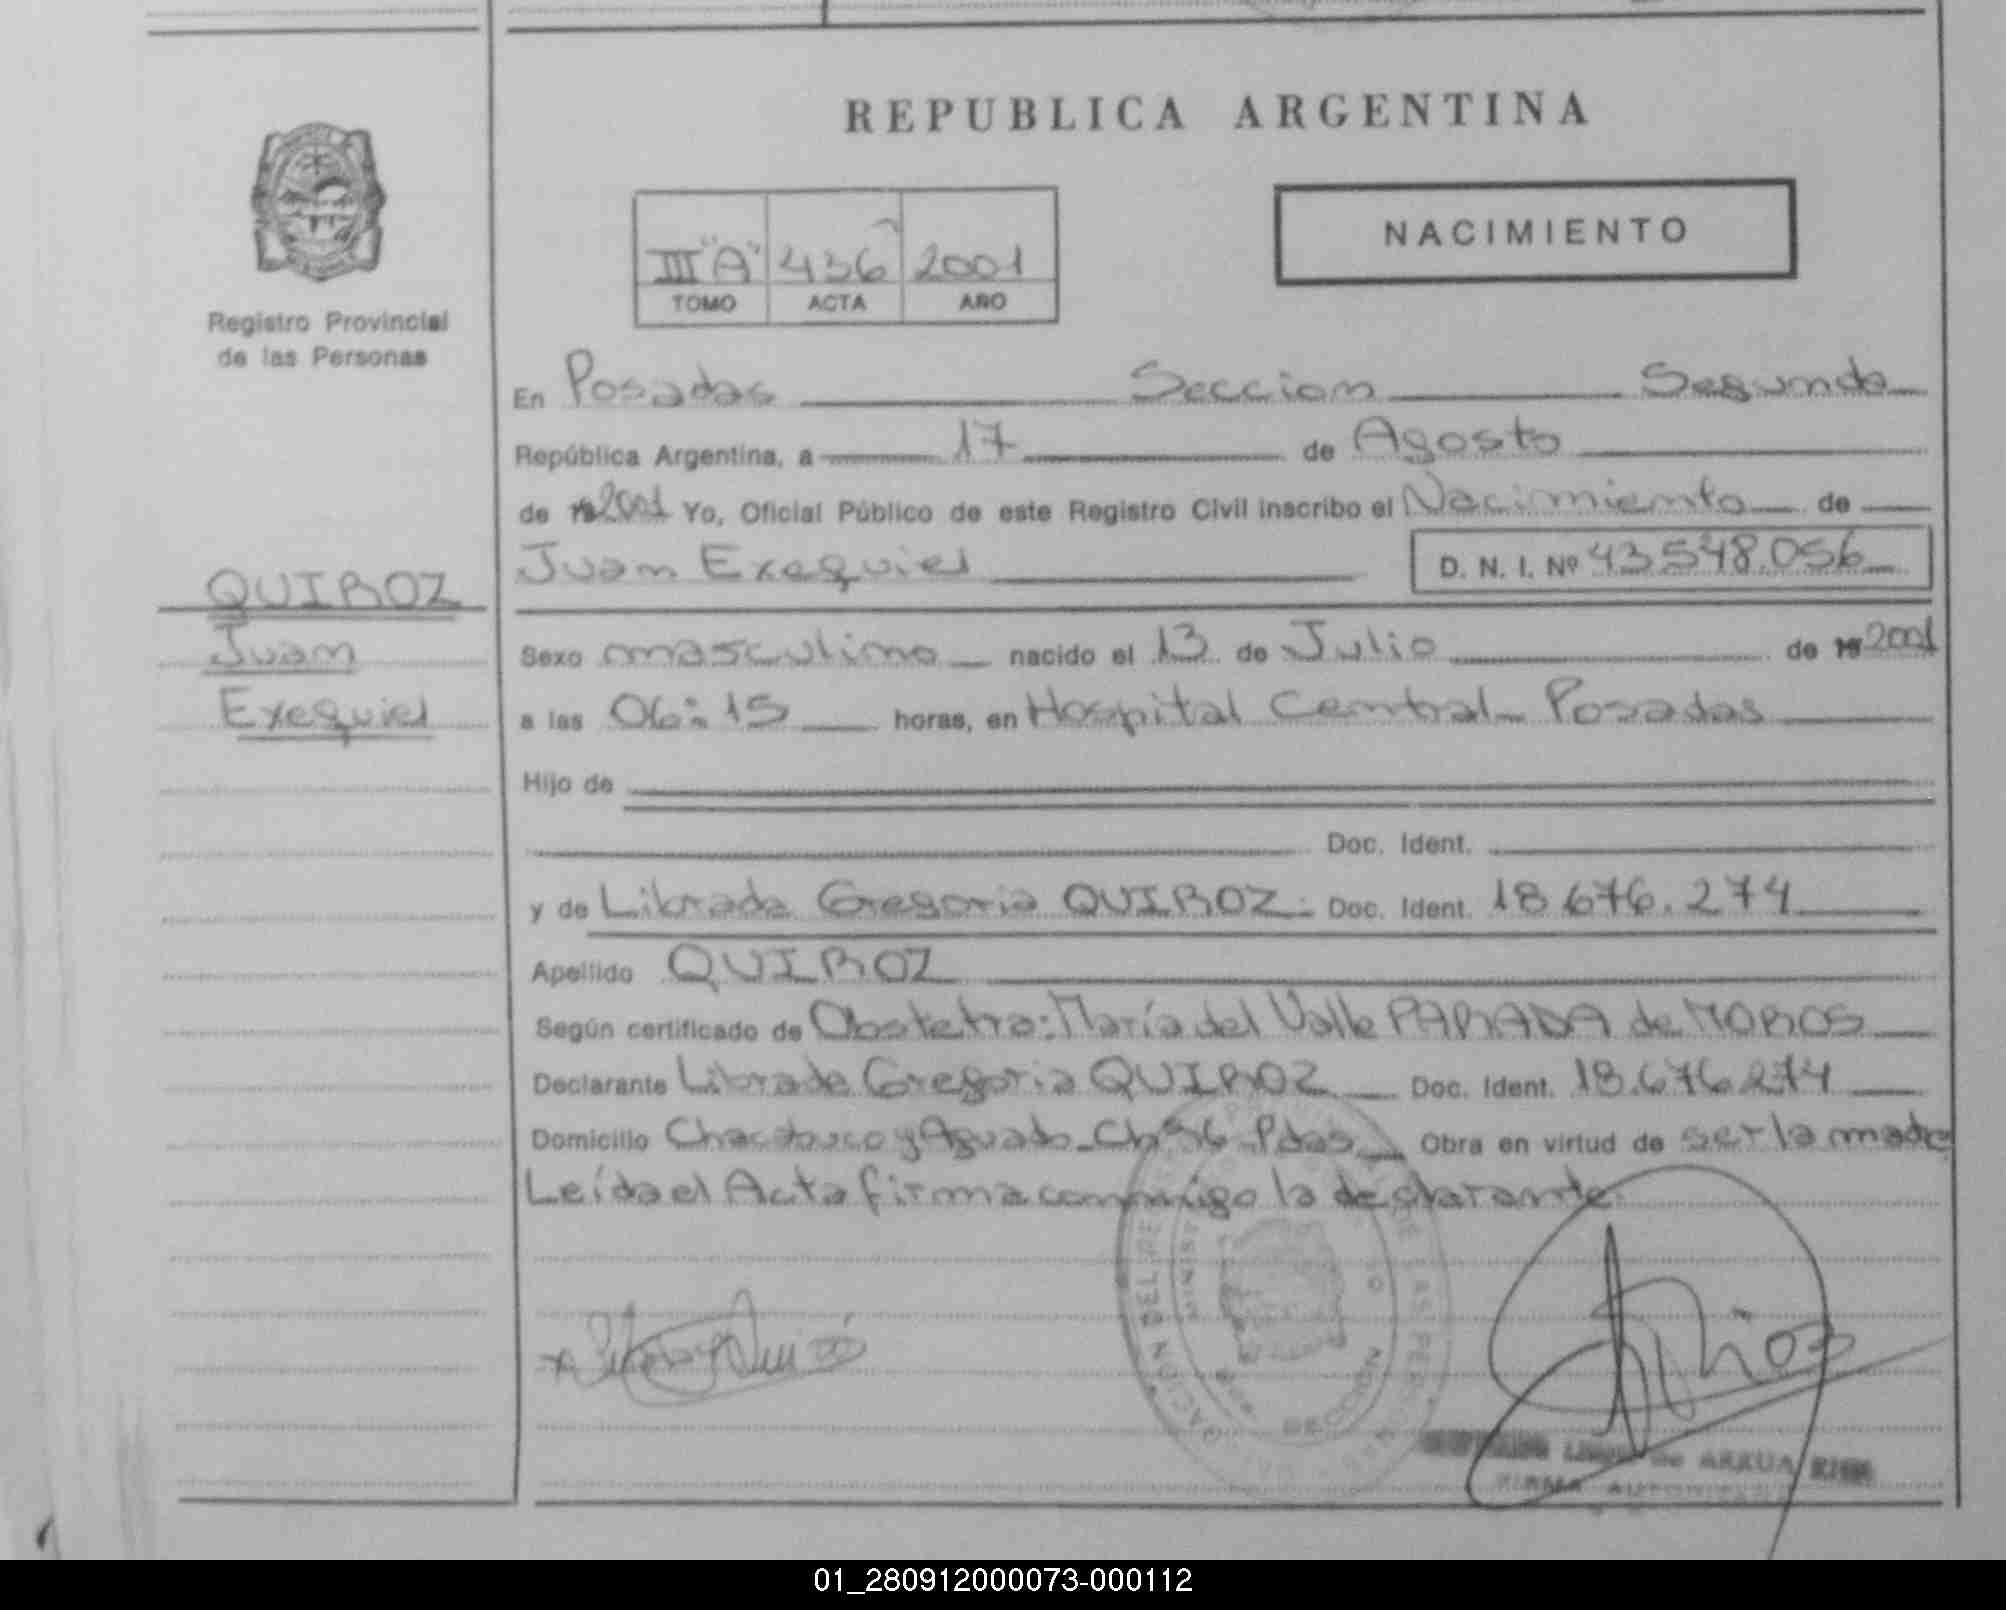 REPUBLICA ARGENTINA
NACIMIENTO
III "A" 436 2001
TOMO ACTA AÑO
Registro Provincial
de las Personas
En Posadas Seccion Segunda
República Argentina, a 17 de Agosto
de 19 2001 Yo, Oficial Público de este Registro Civil inscribo el Nacimiento de
Juan Exequiel D. N. I. Nº 43.548.056
QUIROZ
Juan
Exequiel
Sexo masculino nacido el 13 de Julio de 19 2001
a las 06:15 horas, en Hospital Central - Posadas
Hijo de
Doc. Ident.
y de Librada Gregoria QUIROZ Doc. Ident. 18.676.274
Apellido QUIROZ
Según certificado de Obstetra: María del Valle PARADA de MOROS
Declarante Librada Gregoria QUIROZ Doc. Ident. 18.676.274
Domicilio Chacabuco y Aguado - Ch 56 - Pdas Obra en virtud de ser la madre
Leída el Acta firma conmigo la declarante.
SECCION
de ARRUA RIOS
FIRMA AUTORIZADA
01_280912000073-000112